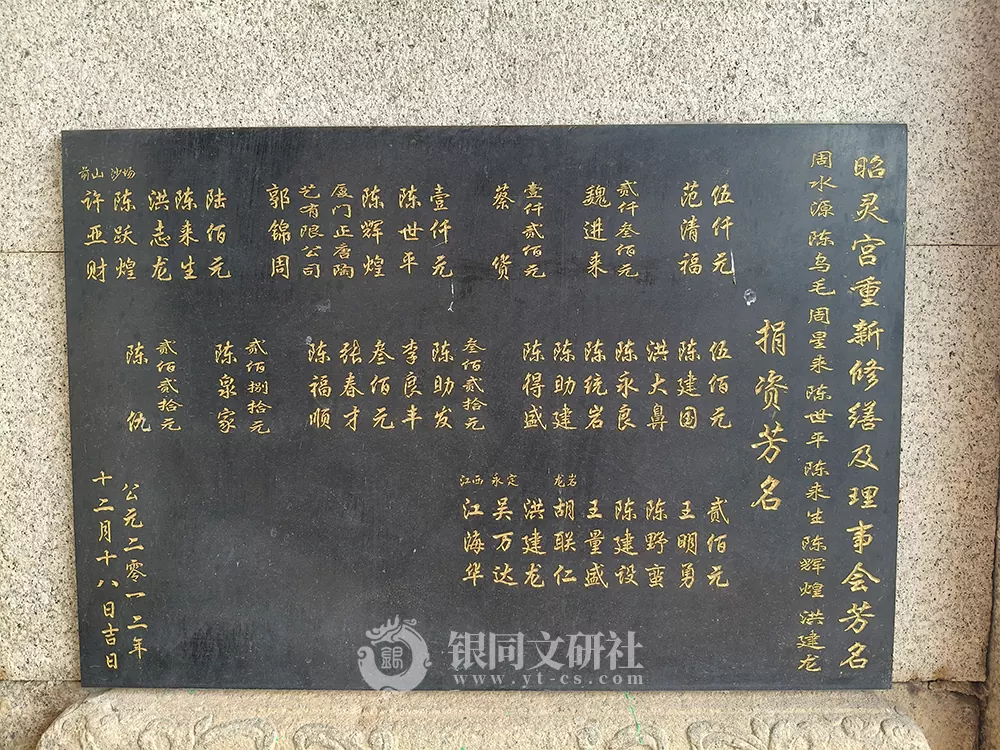 昭灵宫重新修缮及理事会芳名
周水源 陈乌毛 周星来 陈世平 陈来生 陈辉煌 洪建龙
捐资芳名
伍仟元
范清福
贰仟叁佰元
魏进来
壹仟贰佰元
蔡货
壹仟元
陈世平
陈辉煌
厦门正唐陶
艺有限公司
郭锦周
陆佰元
陈来生
洪志龙
沙场
陈跃煌
前山
许亚财
伍佰元
陈建国
洪大鼻
陈永良
陈统岩
陈助建
陈得盛
叁佰贰拾元
陈助发
李良丰
叁佰元
张春才
陈福顺
贰佰捌拾元
陈泉家
贰佰贰拾元
陈仇
贰佰元
王明勇
陈野蛮
陈建设
王量盛
龙岩
胡联仁
洪建龙
永定
吴万达
江西
江海华
公元二零一二年
十二月十八日吉日
银同文研社
www.yt-cs.com